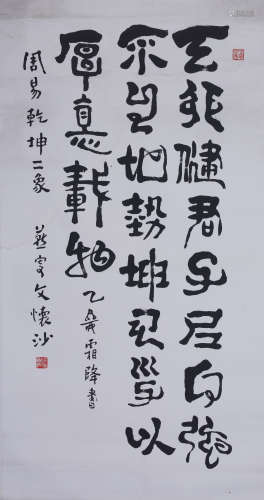 天行健君子㠯自強
不息地勢坤君子以
厚悳載物
乙亥霜降書
周易乾坤二象
燕叟文懷沙